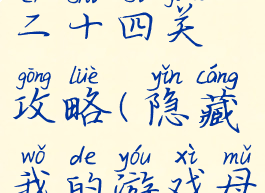 二十四关
gōng lüè yǐn cáng
攻略(隐藏
wǒ de yóu xì mǔ
我的游戏母